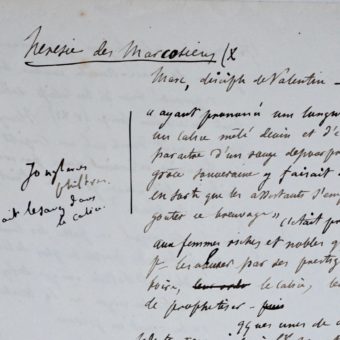 heresie des Marcosiens (x
Marc, disciple de Valentin –
« ayant prononcé une longue
un calice mêlé de vin et d'e
paraitre d'un rouge de pourpre
grace souveraine y faisait
en sorte que les assistants s'em
gouter ce breuvage » (c'était p
aux femmes riches et nobles q
par ses prestig
le calice, le
de prophetiser – puis
qques unes de
Jongleries
philtres
le sang dans
le calice